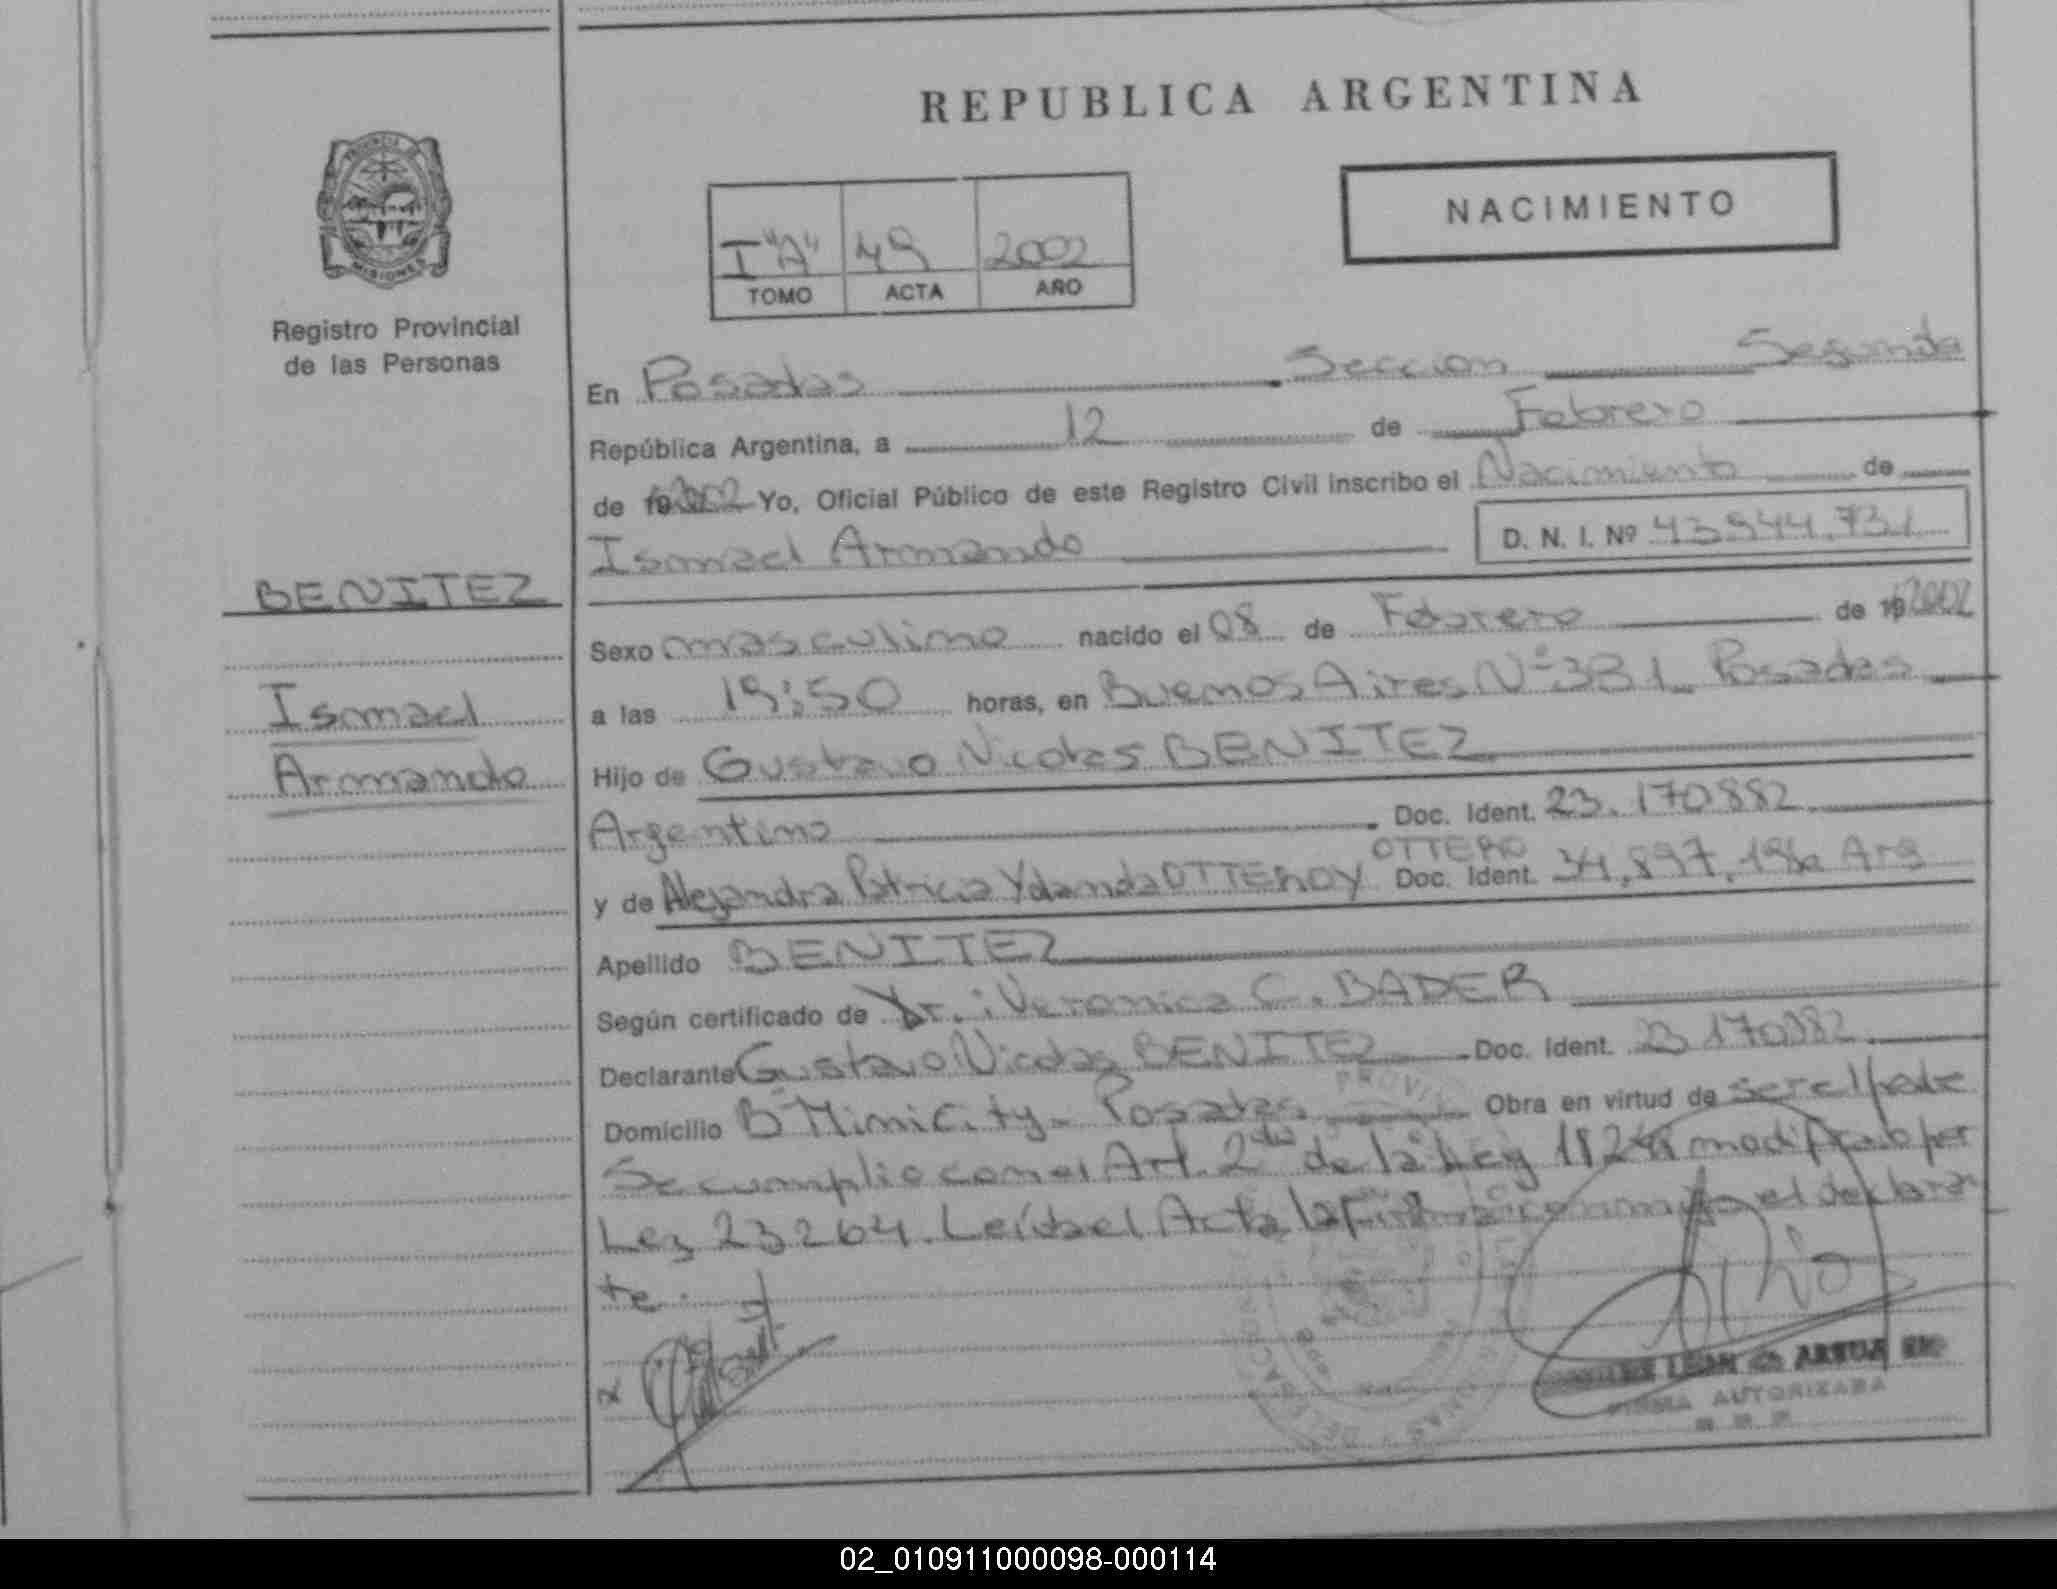 REPUBLICA ARGENTINA
PROVINCIA DE
MISIONES
NACIMIENTO
I "A" 49 2002
TOMO ACTA AÑO
Registro Provincial
de las Personas
En Posadas Seccion Segunda
República Argentina, a 12 de Febrero
de 2002 Yo, Oficial Público de este Registro Civil inscribo el Nacimiento de
Ismael Armando D. N. I. Nº 43.944.731
BENITEZ
Sexo masculino nacido el 08 de Febrero de 2002
Ismael
a las 19:50 horas, en Buenos Aires Nº 381 Posadas
Armando
Hijo de Gustavo Nicolas BENITEZ
Argentino Doc. Ident. 23.170882
OTTERO
y de Alejandra Patricia Yolanda Doc. Ident. 34,897, Arg
Apellido BENITEZ
Según certificado de Dr.: Veronica C. BADER
Declarante Gustavo Nicolas BENITEZ Doc. Ident. 23 170882
Domicilio Bº Mini City - Posadas Obra en virtud de ser el padre
Se cumplio con el Art. 2do de la Ley modificado por
Ley 23264. Leída el Acta la firma conmigo el declaran
te.
FIRMA AUTORIZADA
02_010911000098-000114